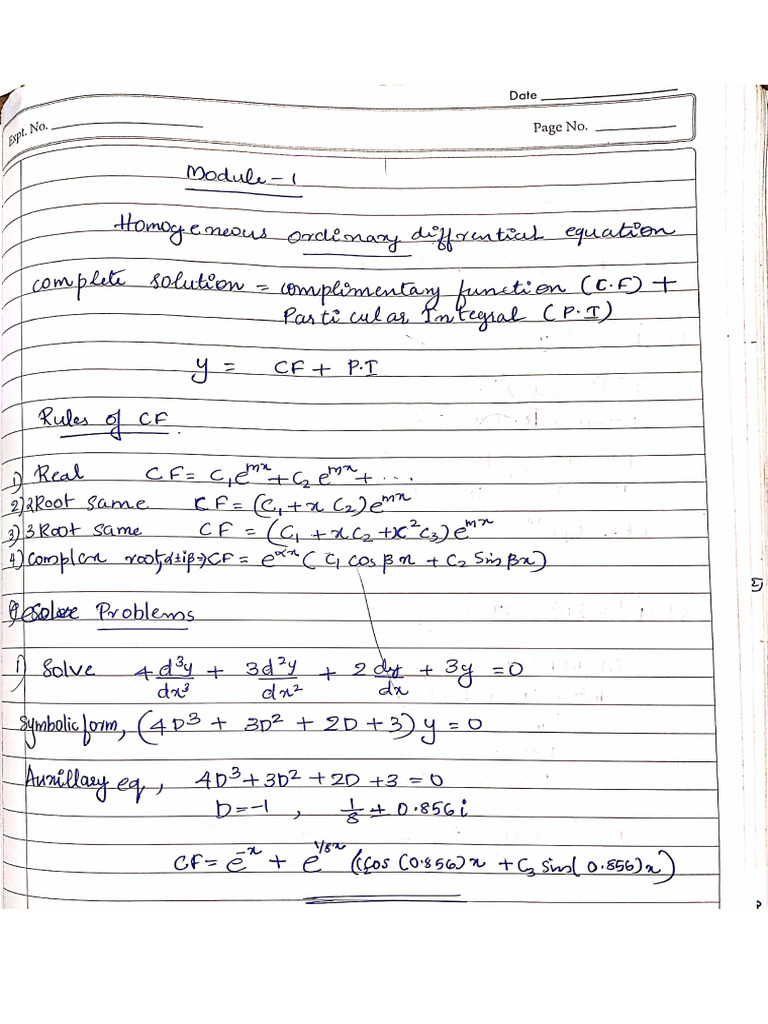 Date
Expt. No.
Page No.
Module - 1
Homogeneous ordinary diffrential equation
complete solution = complimentary function (C.F) +
Particular Integral (P.I)
y = CF + P.I
Rules of CF
1) Real CF = C₁e^mx + C₂e^mx + ...
2) 2Root same CF = (C₁ + x C₂)e^mx
3) 3Root same CF = (C₁ + xC₂ + x²C₃)e^mx
4) Complex root, α±iβ => CF = e^αx (C₁ cos βx + C₂ Sin βx)
Problems
1) Solve 4 d³y/dx³ + 3 d²y/dx² + 2 dy/dx + 3y = 0
Symbolic form, (4D³ + 3D² + 2D + 3) y = 0
Auxillary eq, 4D³ + 3D² + 2D + 3 = 0
D = -1, 1/8 ± 0.856 i
CF = e^-x + e^1/8x (C₂cos (0.856)x + C₃ sin( 0.856)x)